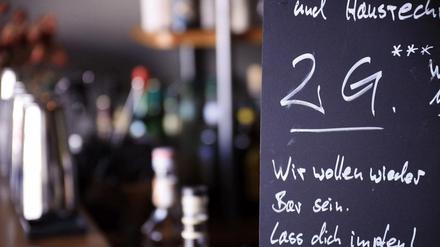 und Hausrech
***
2G.
Wir wollen wieder
Bar sein.
Lass dich impfen!